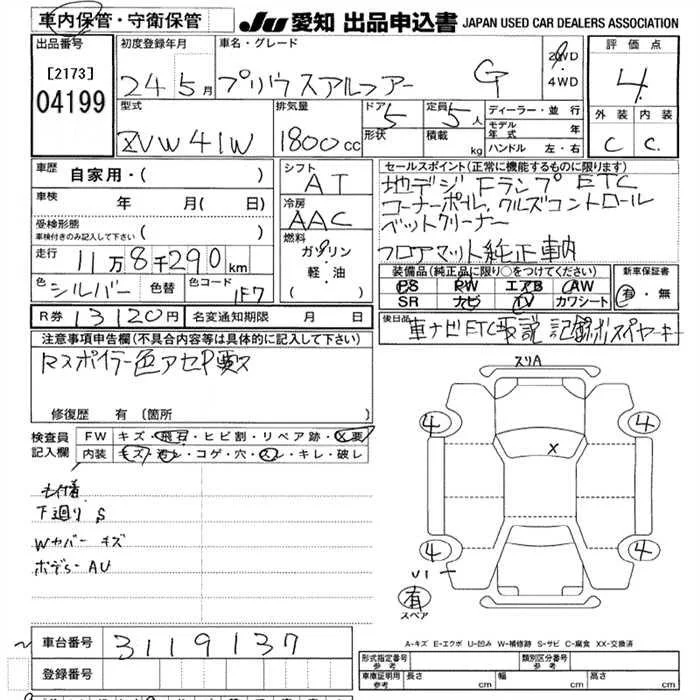 車内保管・守衛保管
JU 愛知 出品申込書 JAPAN USED CAR DEALERS ASSOCIATION
出品番号
[2173]
04199
初度登録年月
24 5月
車名・グレード
プリウスアルファー G
2WD
4WD
評価点
4
外装 内装
C C
型式
ZVW41W
排気量
1800cc
ドア 5
形状
定員 5人
積載 kg
ディーラー・並行
モデル年式 年
ハンドル 左・右
車歴
自家用・( )
車検 年 月( 日)
受検形態
車検付きのみ記入して下さい ( )
走行 11万8千290km
色 シルバー 色替 色コード 1F7
シフト
AT
冷房
AAC
燃料
ガソリン
軽・油
( )
セールスポイント(正常に機能するものに限ります)
地デジ Fランプ ETC
コーナーポール、クルズコントロール
ベットクリーナー
フロアマット純正車内
装備品(純正品に限り○をつけてください)
PS PW エアB AW
SR ナビ TV カワシート
新車保証書
有・無
R券 13120円 名変通知期限 月 日
後日品
車ナビETC取説
注意事項申告欄(不具合内容等は具体的に記入して下さい)
Rスポイラー色アセP要ス
修復歴 有 (箇所
検査員記入欄
FW キズ・飛石・ヒビ割・リペア跡・X要
内装 キズ・汚レ・コゲ・穴・スレ・キレ・破レ
下廻り S
Wカバー キズ
スリA
X
4 4
4 4
U1
有
スペア
A-キズ E-エクボ U-凹み W-補修跡 S-サビ C-腐食 XX-交換済
車台番号 3119137
登録番号
型式指定番号 参考
類別区分番号 参考
車庫証明用 参考 長さ cm 幅 cm 高さ cm